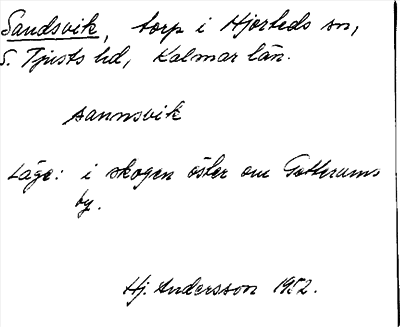 Sandsvik, torp i Hjorteds sn,
S. Tjusts hd, Kalmar län.
sannsvik
Läge: i skogen öster om Gotterums
by.
Hj. Andersson 1952.